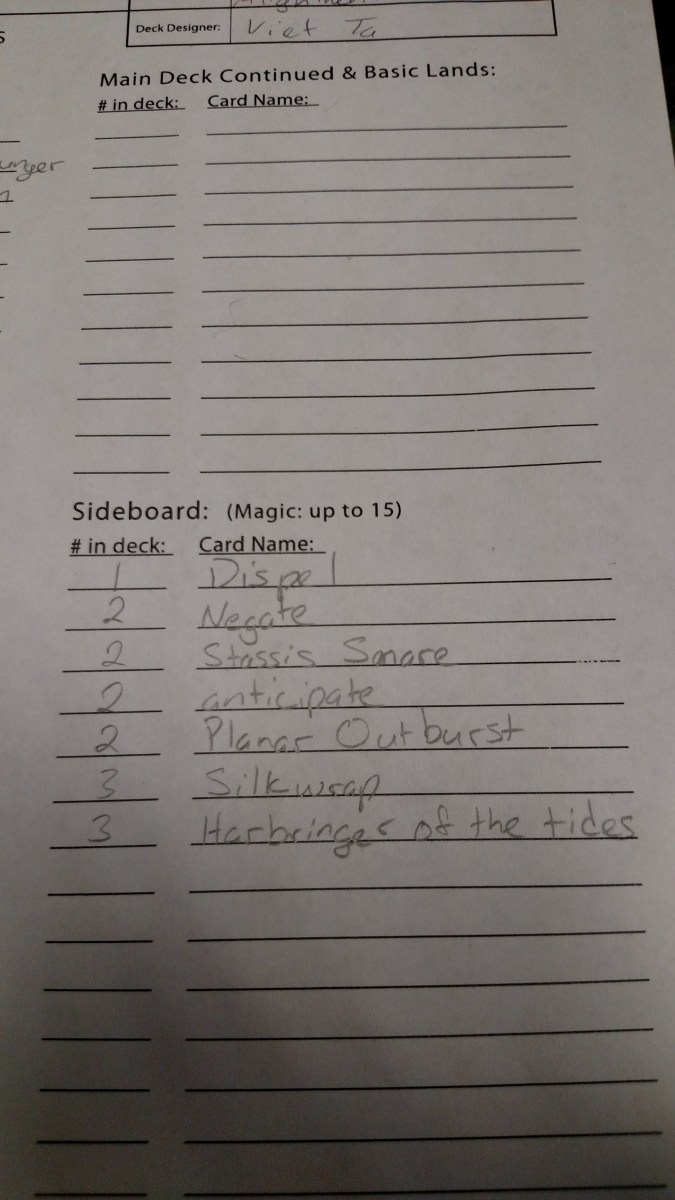 Deck Designer: Viet Ta
Main Deck Continued & Basic Lands:
# in deck: Card Name:
Sideboard: (Magic: up to 15)
# in deck: Card Name:
1 Dispel
2 Negate
2 Stassis Snare
2 anticipate
2 Planar Outburst
3 Silkwrap
3 Harbringer of the tides